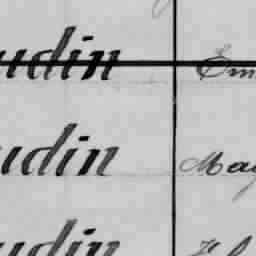 udin Em
udin May
udin